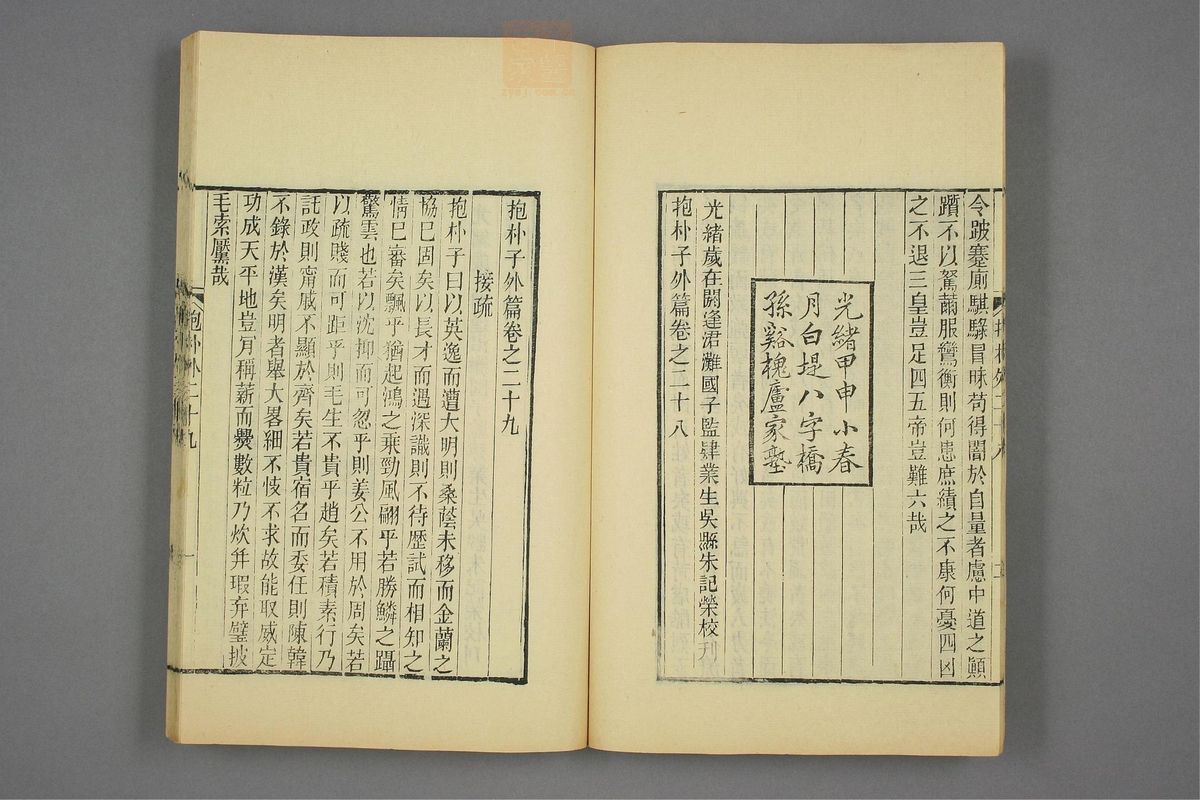 令跛蹇廁騏騄冒昧苟得闇於自量者慮中道之顛
躓不以駑薾服鸞衡則何患庶績之不康何憂四凶
之不退三皇豈足四五帝豈難六哉
光緒甲申小春
月白堤八字橋
孫谿槐廬家塾
光緒歲在閼逢涒灘國子監肄業生吳縣朱記榮校刊
抱朴子外篇卷之二十八
抱朴子外篇卷之二十九
接疏
抱朴子曰以英逸而遭大明則桑蔭未移而金蘭之
協已固矣以長才而遇深識則不待歷試而相知之
情已審矣飄乎猶起鴻之乘勁風翩乎若勝鱗之躡
驚雲也若以沈抑而可忽乎則姜公不用於周矣若
以疏賤而可距乎則毛生不貴乎趙矣若積素行乃
託政則甯戚不顯於齊矣若貴宿名而委任則陳韓
不錄於漢矣明者舉大畧細不忮不求故能取威定
功成天平地豈肎稱薪而爨數粒乃炊并瑕弃璧披
毛索黶哉
抱朴外二十九
一